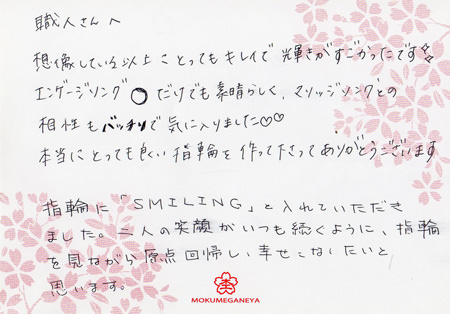 職人さんへ
想像している以上にとってもキレイで輝きがすごかったです
エンゲージリングだけでも素晴らしく、マリッジリングとの
相性もバッチリで気に入りました♡♡
本当にとっても良い指輪を作って下さってありがとうございます
指輪に「SMILING」と入れていただき
ました。二人の笑顔がいつも続くように、指輪
を見ながら原点回帰し、幸せこなしたいと
思います。
MOKUMEGANEYA